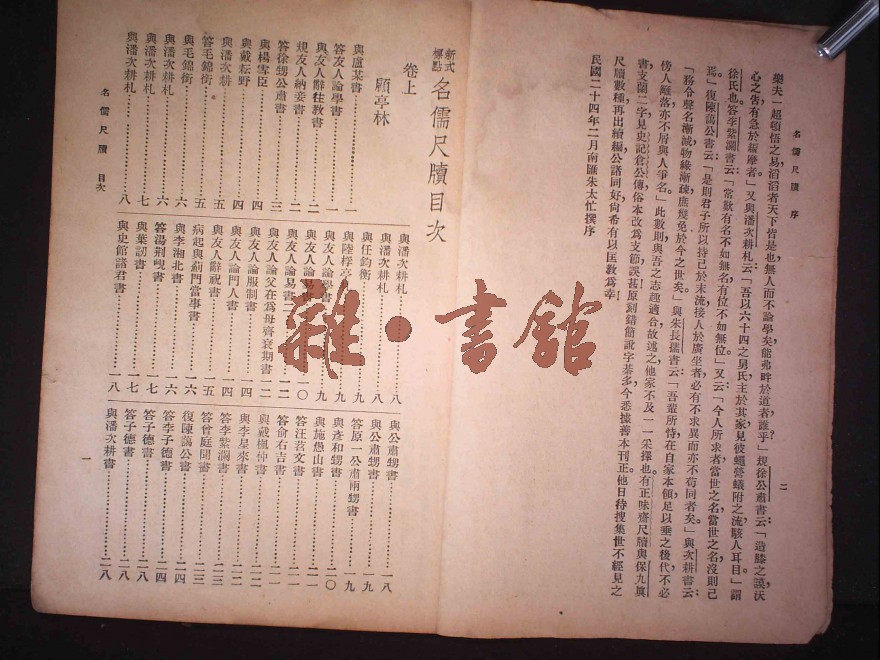 名儒尺牘 序
二
樂夫一超頓悟之易滔滔者天下皆是也無人而不論學矣能弗畔於道者誰乎」規徐公肅書云「造膝之謨沃
心之告有急於編摩者」又與潘次耕札云「吾以六十四之舅氏主於其家見彼蠅營蟻附之流駭人耳目」謂
徐氏也答李紫瀾書云「常歎有名不如無名有位不如無位」又云「今人所求者當世之名當世之名沒則已
焉」復陳藹公書云「是則君子所以持己於末流接人於廣坐者必有不求異而亦不苟同者矣」與次耕書云
「務令聲名漸減物緣漸疎庶幾免於今之世矣」與朱長孺書「吾輩所恃在自家本領足以垂之後代不必
傍人籬落亦不屑與人爭名」此數則與吾之志趣適合故述之他家不及一一采擇也有正味齋尺牘與保九眞
書支蘭二字見史記倉公傳俗本改爲支節誤甚原刻錯簡訛字綦多今悉據善本刊正他日待搜集世不經見之
尺牘數種再出續編公諸同好尙希有以匡敎爲幸
民國二十四年二月南匯朱太忙撰序
新式標點 名儒尺牘目次
卷上
顧亭林
與盧某書 一
答友人論學書 一
與友人辭往敎書 二
規友人納妾書 二
答徐甥公肅書 三
與楊雪臣 四
與戴耘野 四
與潘次耕 五
答毛錦銜 五
與毛錦銜 六
與潘次耕札 六
與潘次耕札 七
與潘次耕札 八
與潘次耕札 八
與潘次耕札 八
與任鈞衡 九
與陸桴亭 九
與友人論學書 九
與友人論易書 一〇
與友人論易書二 一二
與友人論父在爲母齊衰期書 一二
與友人論服制書 一四
與友人論門人書 一四
與友人辭祝書 一五
病起與薊門當事書 一六
與李湘北書 一六
答湯荆峴書 一七
與葉訒書 一七
與史館諸君書 一八
與公肅甥書 一八
與公肅甥書 一九
答原一公肅兩甥書 一九
與彥和甥書 二〇
與施愚山書 二一
答汪苕文書 二一
答俞右吉書 二一
與戴楓仲書 二二
與李星來書 二二
答李紫瀾書 二三
答曾庭聞書 二三
復陳藹公書 二四
答李子德書 二四
答子德書 二八
答子德書 二八
與潘次耕書 二八
名儒尺牘 目次
一
雜·書館